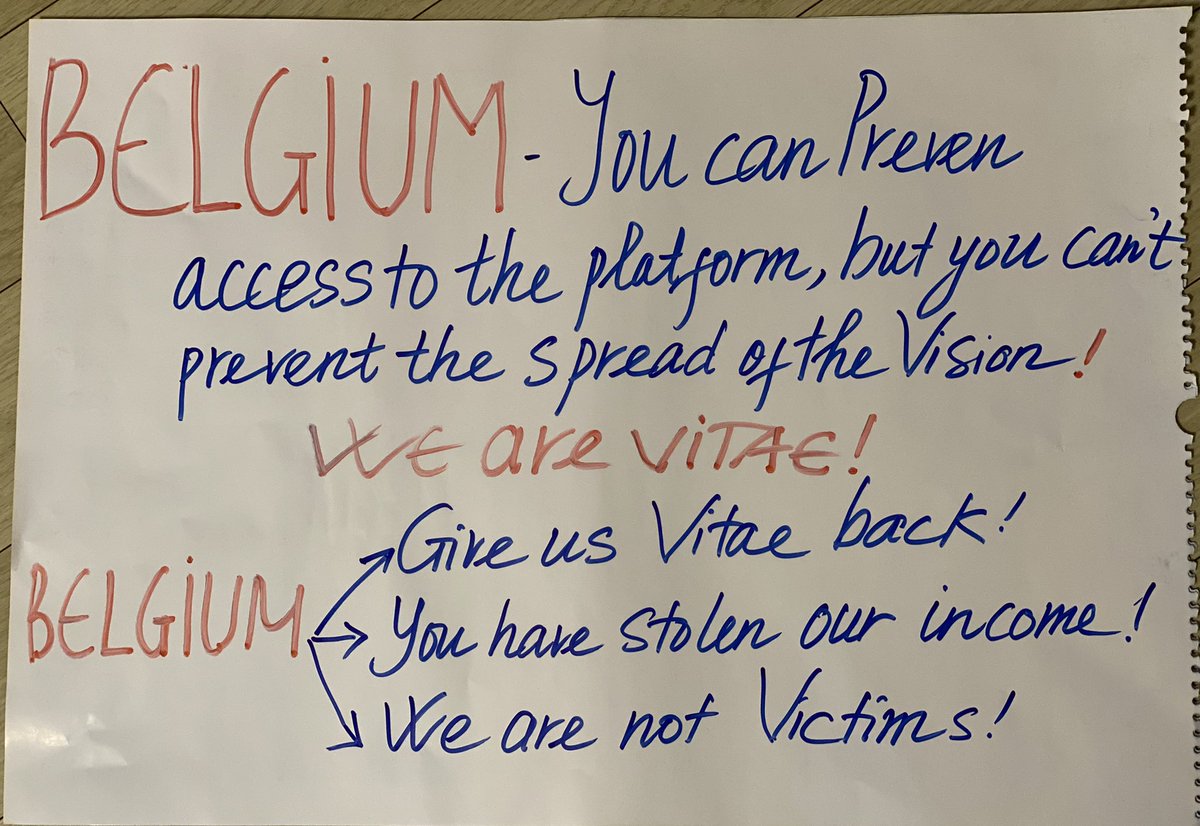 BELGIUM - You can Preven
access to the platform, but you can't
prevent the spread of the Vision!
WE are ViTAE!
Give us Vitae back!
BELGIUM You have stolen our income!
We are not Victims!